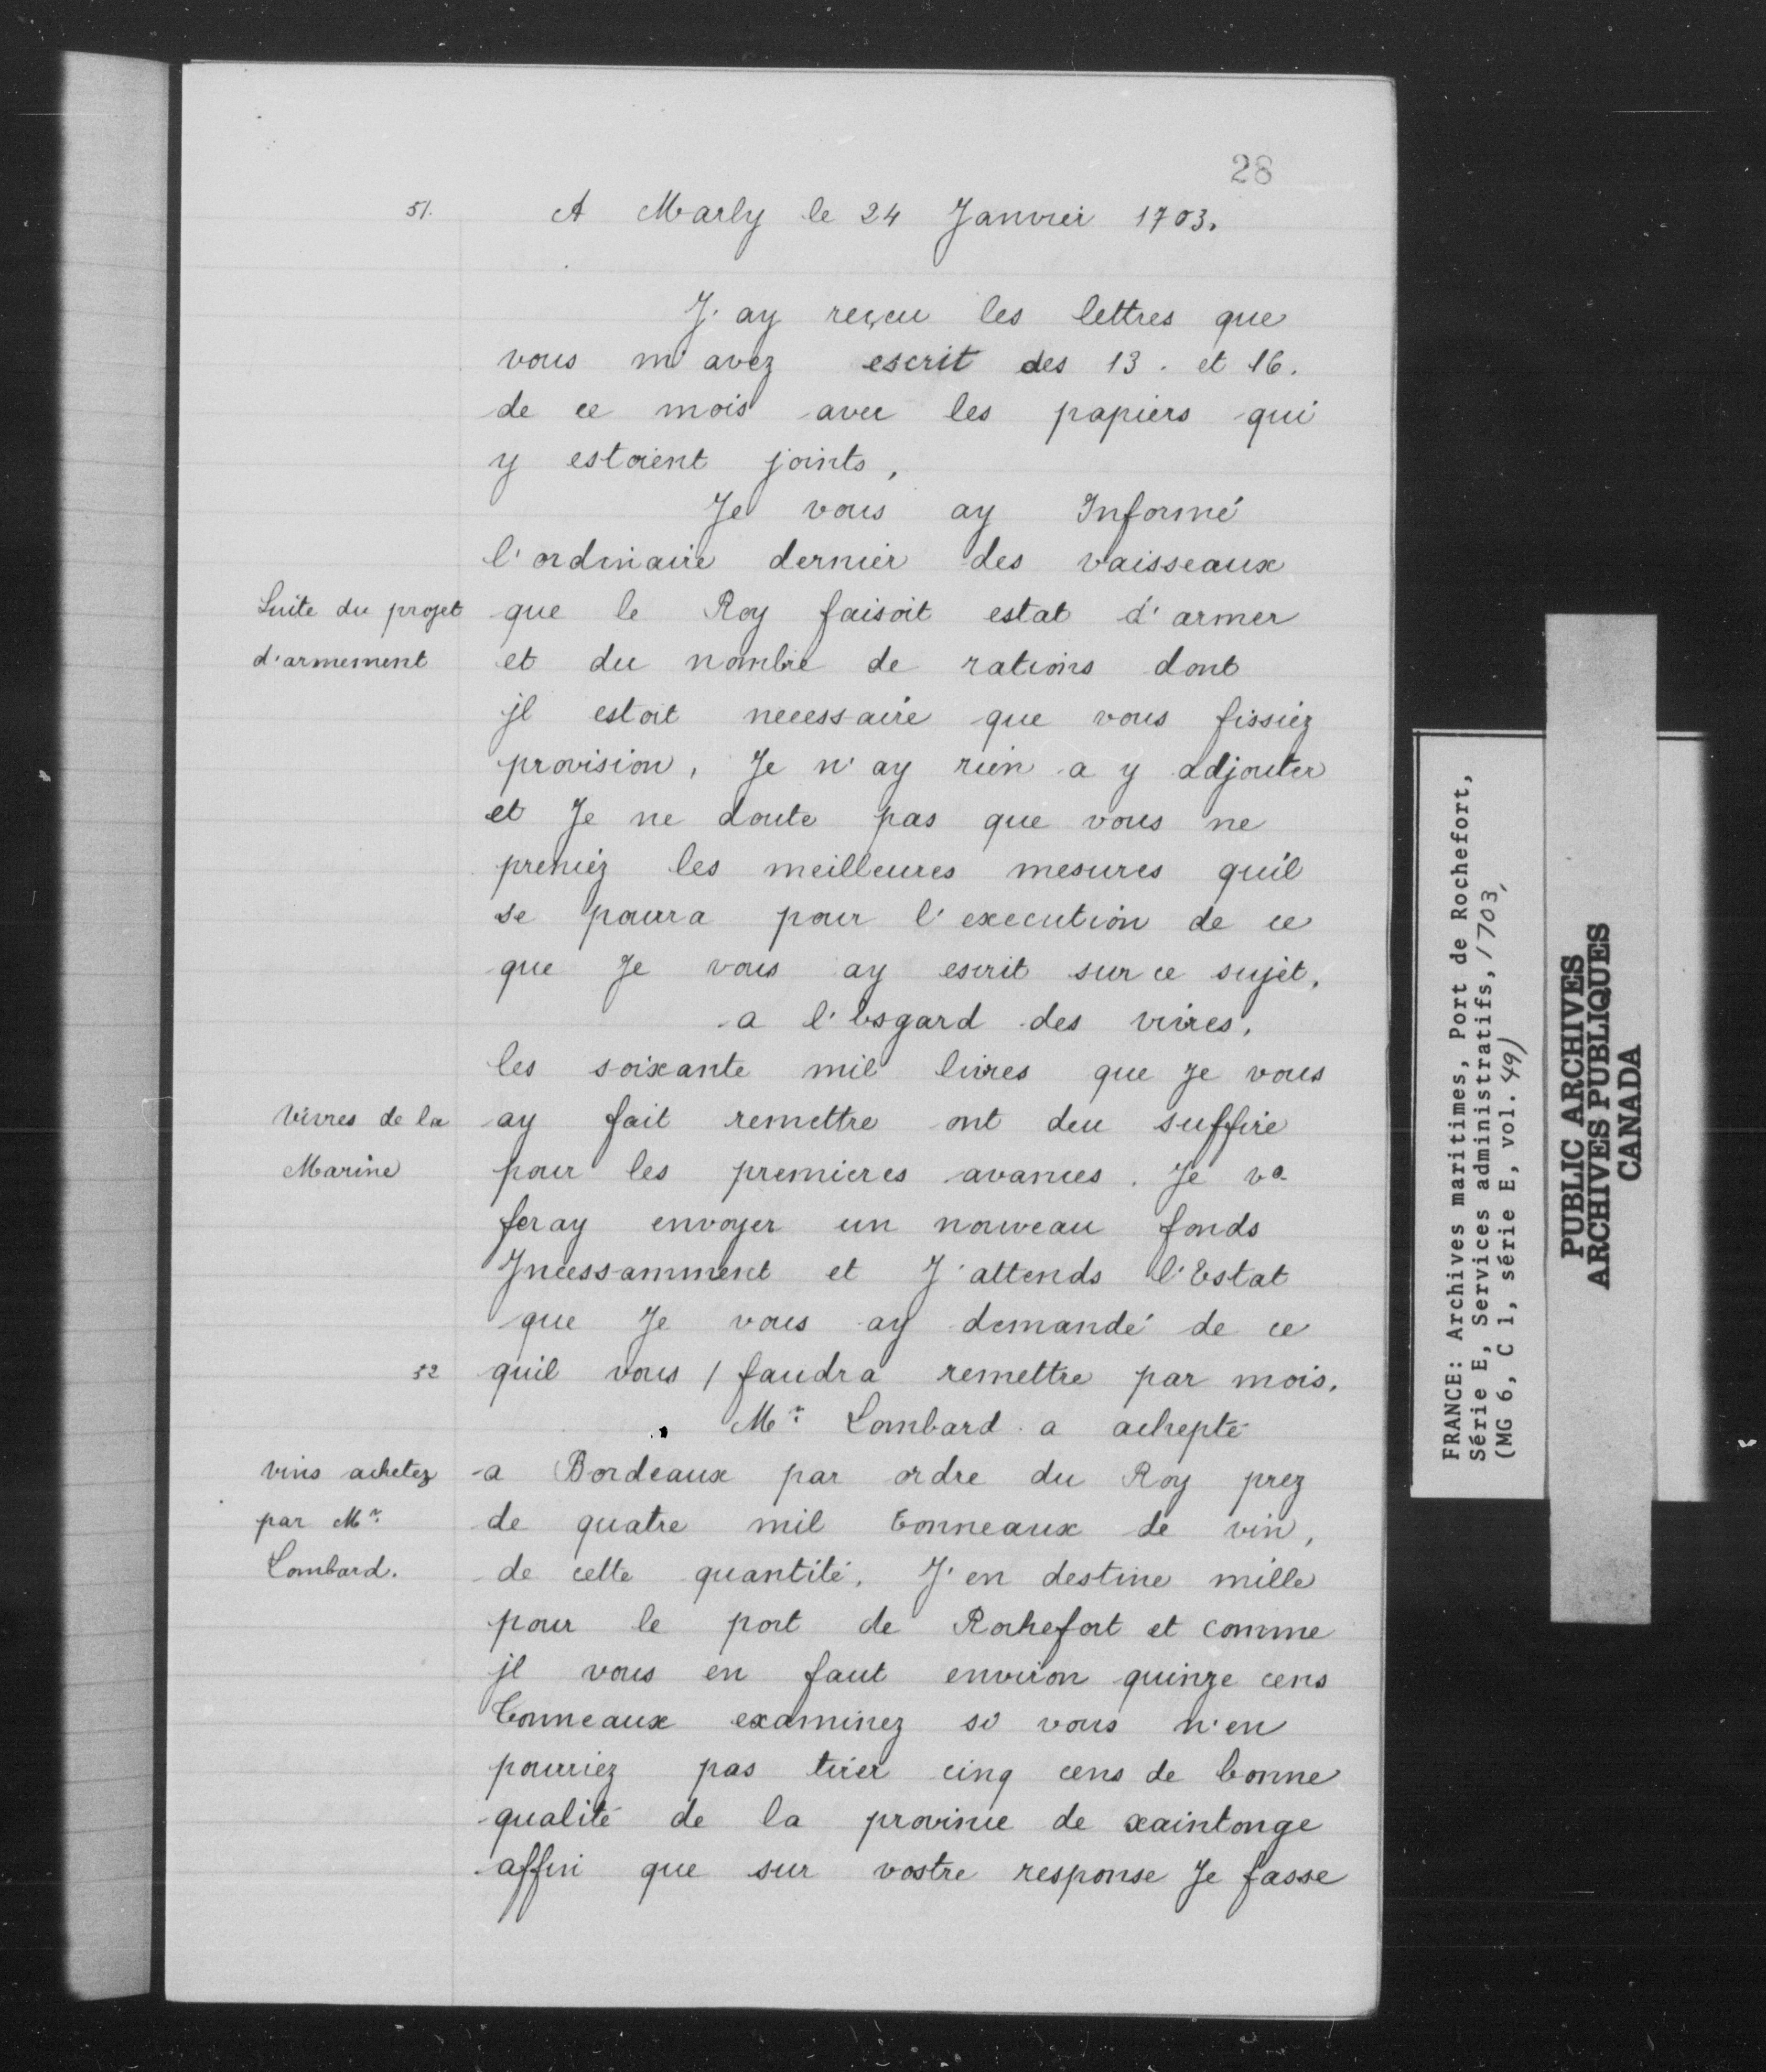 28
51. A Marly le 24 Janvier 1703.
J'ay reçeu les lettres que
vous m'avez escrit des 13. et 16.
de ce mois avec les papiers qui
y estoient joints,
Je vous ay Informé
l'ordinaire dernier des vaisseaux
Suite du projet
d'armement
que le Roy faisoit estat d'armer
et du nombre de rations dont
jl estoit necessaire que vous fissiez
provision, Je n'ay rien a y adjouter
et Je ne doute pas que vous ne
preniez les meilleures mesures quil
se pourra pour l'execution de ce
que Je vous ay escrit sur ce sujet,
a l'Esgard des vivres,
les soixante mil livres que Je vous
Vivres de la
Marine
ay fait remettre ont deu suffire
pour les premieres avances. Je vo.
feray envoyer un nouveau fonds
Jncessamment et J'attends l'Estat
que Je vous ay demandé de ce
52 quil vous / faudra remettre par mois,
Mr. Lombard a achepté
vins achetez
par Mr.
Lombard.
a Bordeaux par ordre du Roy prez
de quatre mil tonneaux de vin,
de cette quantité, J'en destine mille
pour le port de Rochefort et comme
jl vous en faut environ quinze cens
tonneaux examinez si vous n'en
pourriez pas tirer cinq cens de bonne
qualité de la province de xaintonge
affin que sur vostre response Je fasse
FRANCE: Archives maritimes, Port de Rochefort,
Série E, Services administratifs, 1703,
(MG 6, C 1, série E, vol. 49)
PUBLIC ARCHIVES
ARCHIVES PUBLIQUES
CANADA